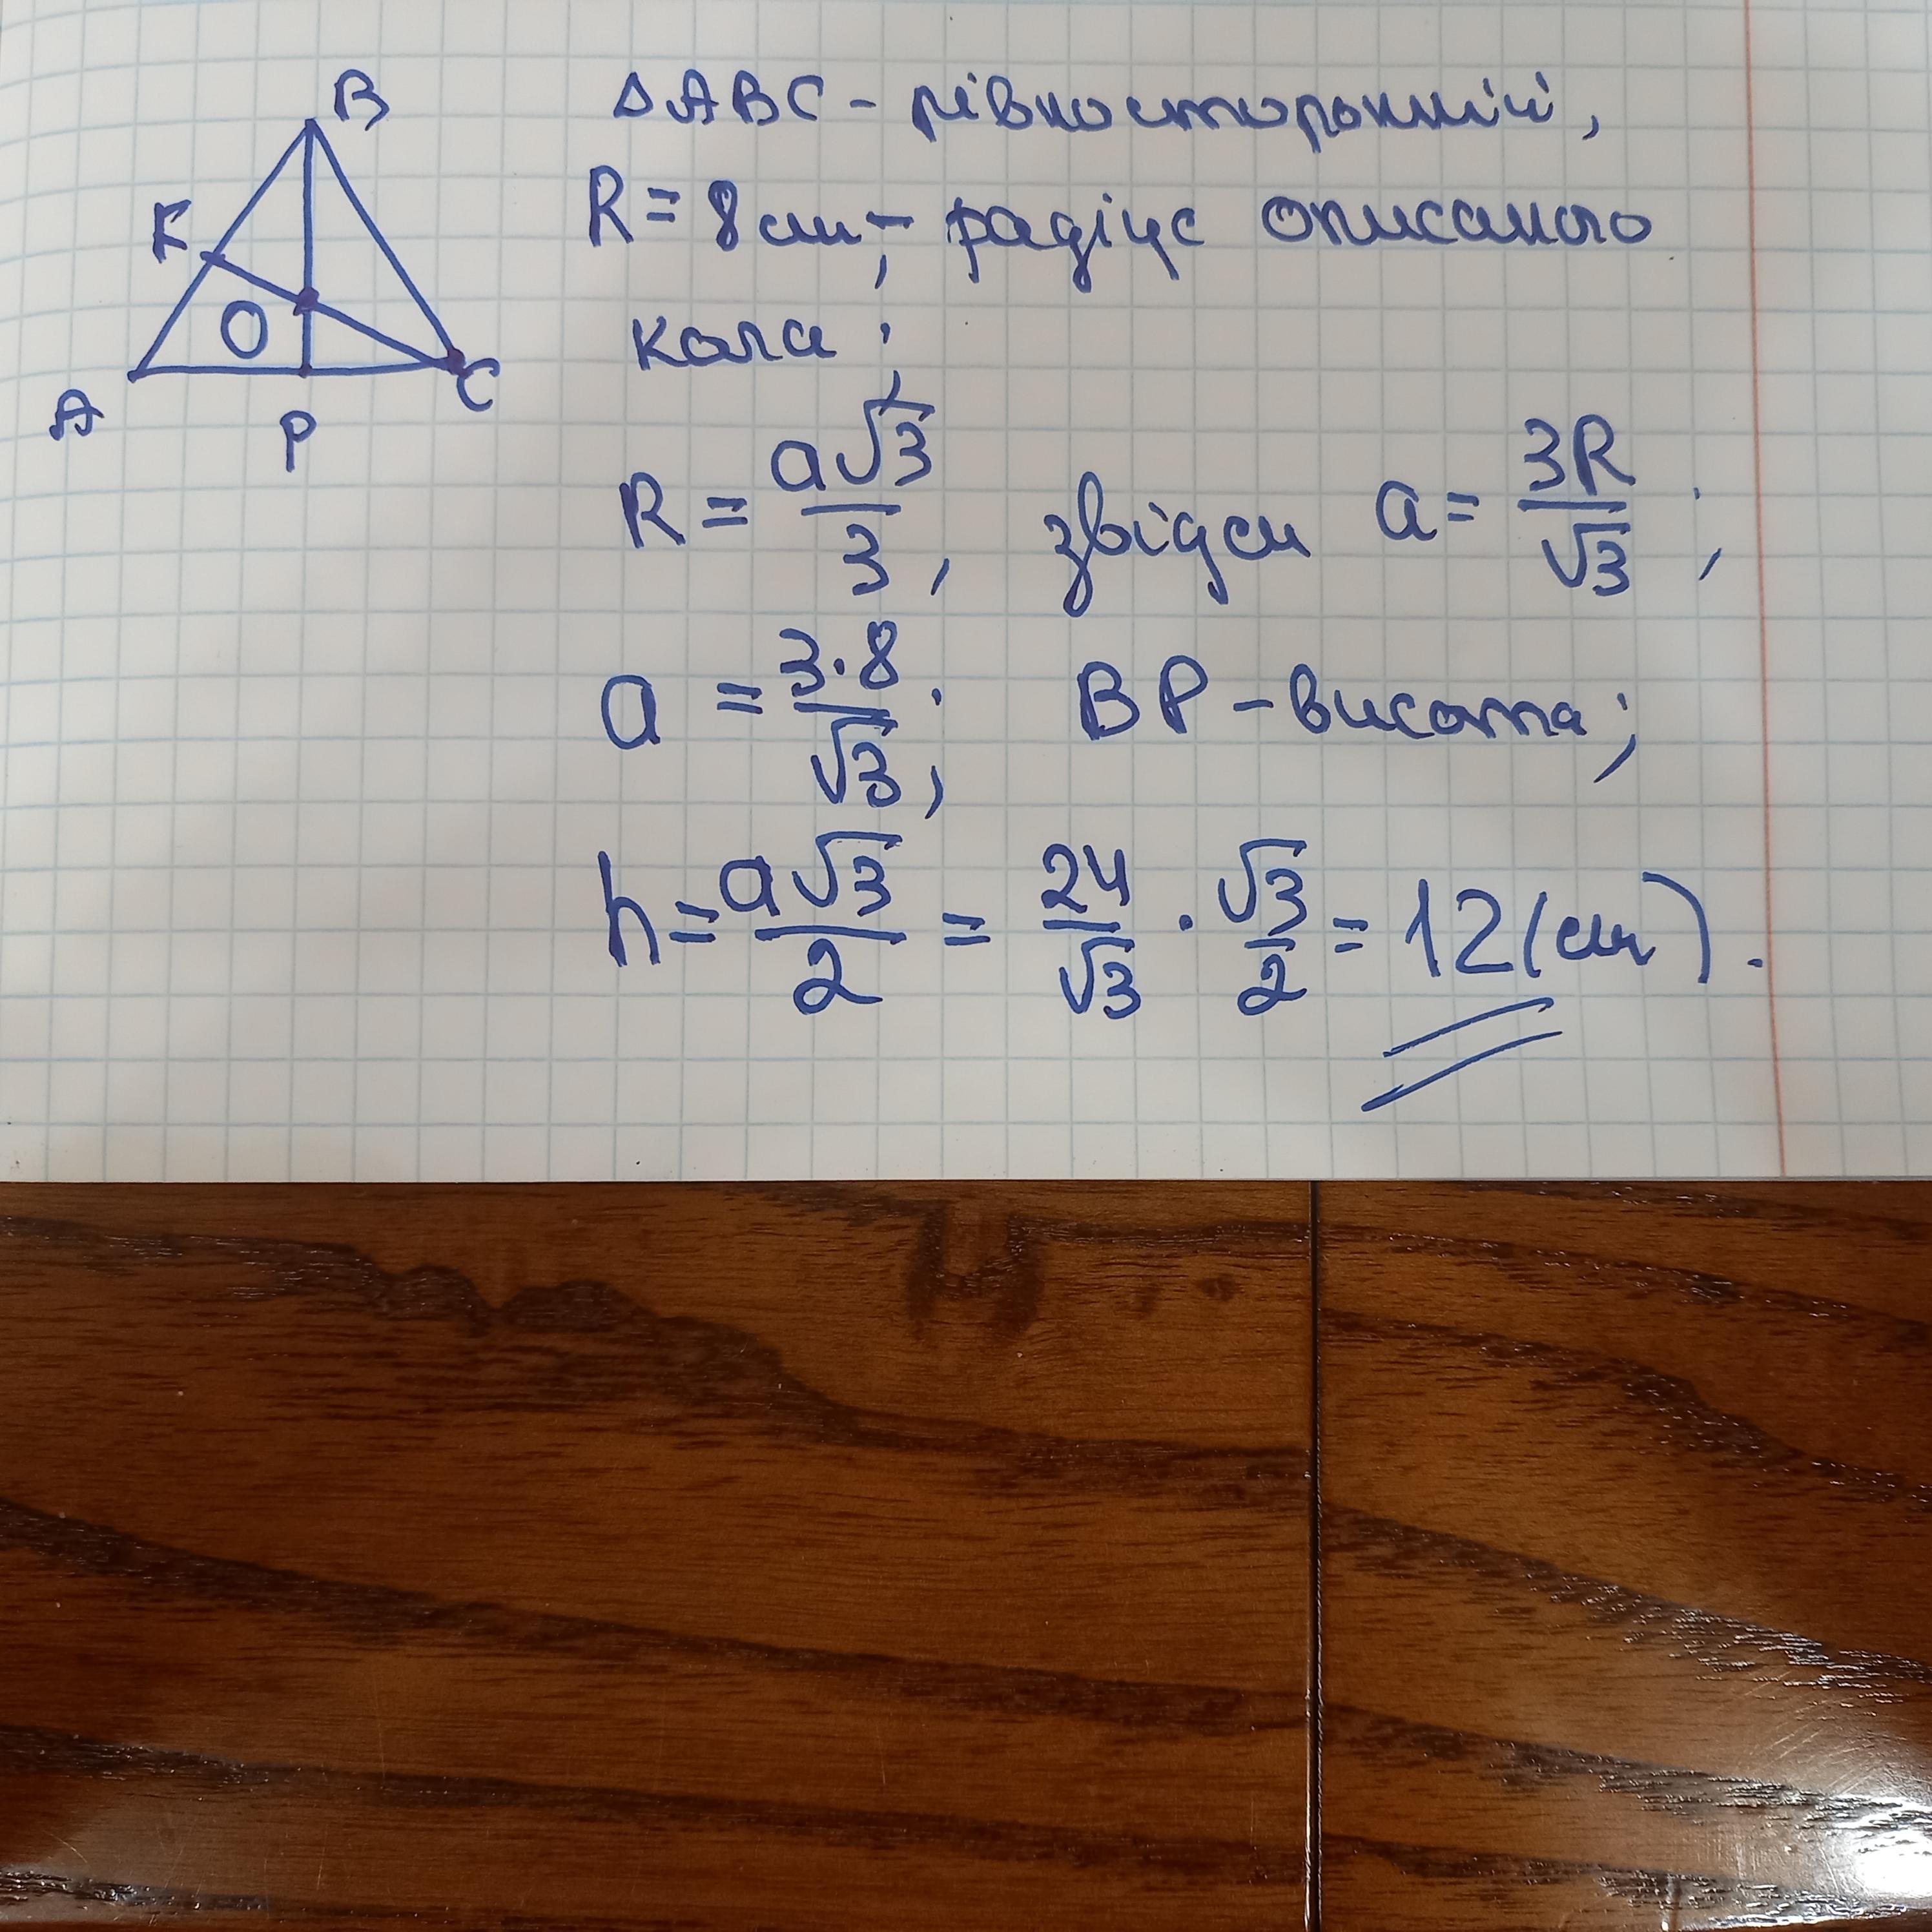 B
K
O
A
P
C
ΔABC - рівносторонній,
R = 8 см, - радіус описаного
кола;
R = a√3/3, звідси a = 3R/√3;
a = 3·8/√3; BP - висота;
h = a√3/2 = 24/√3 · √3/2 = 12 (см).